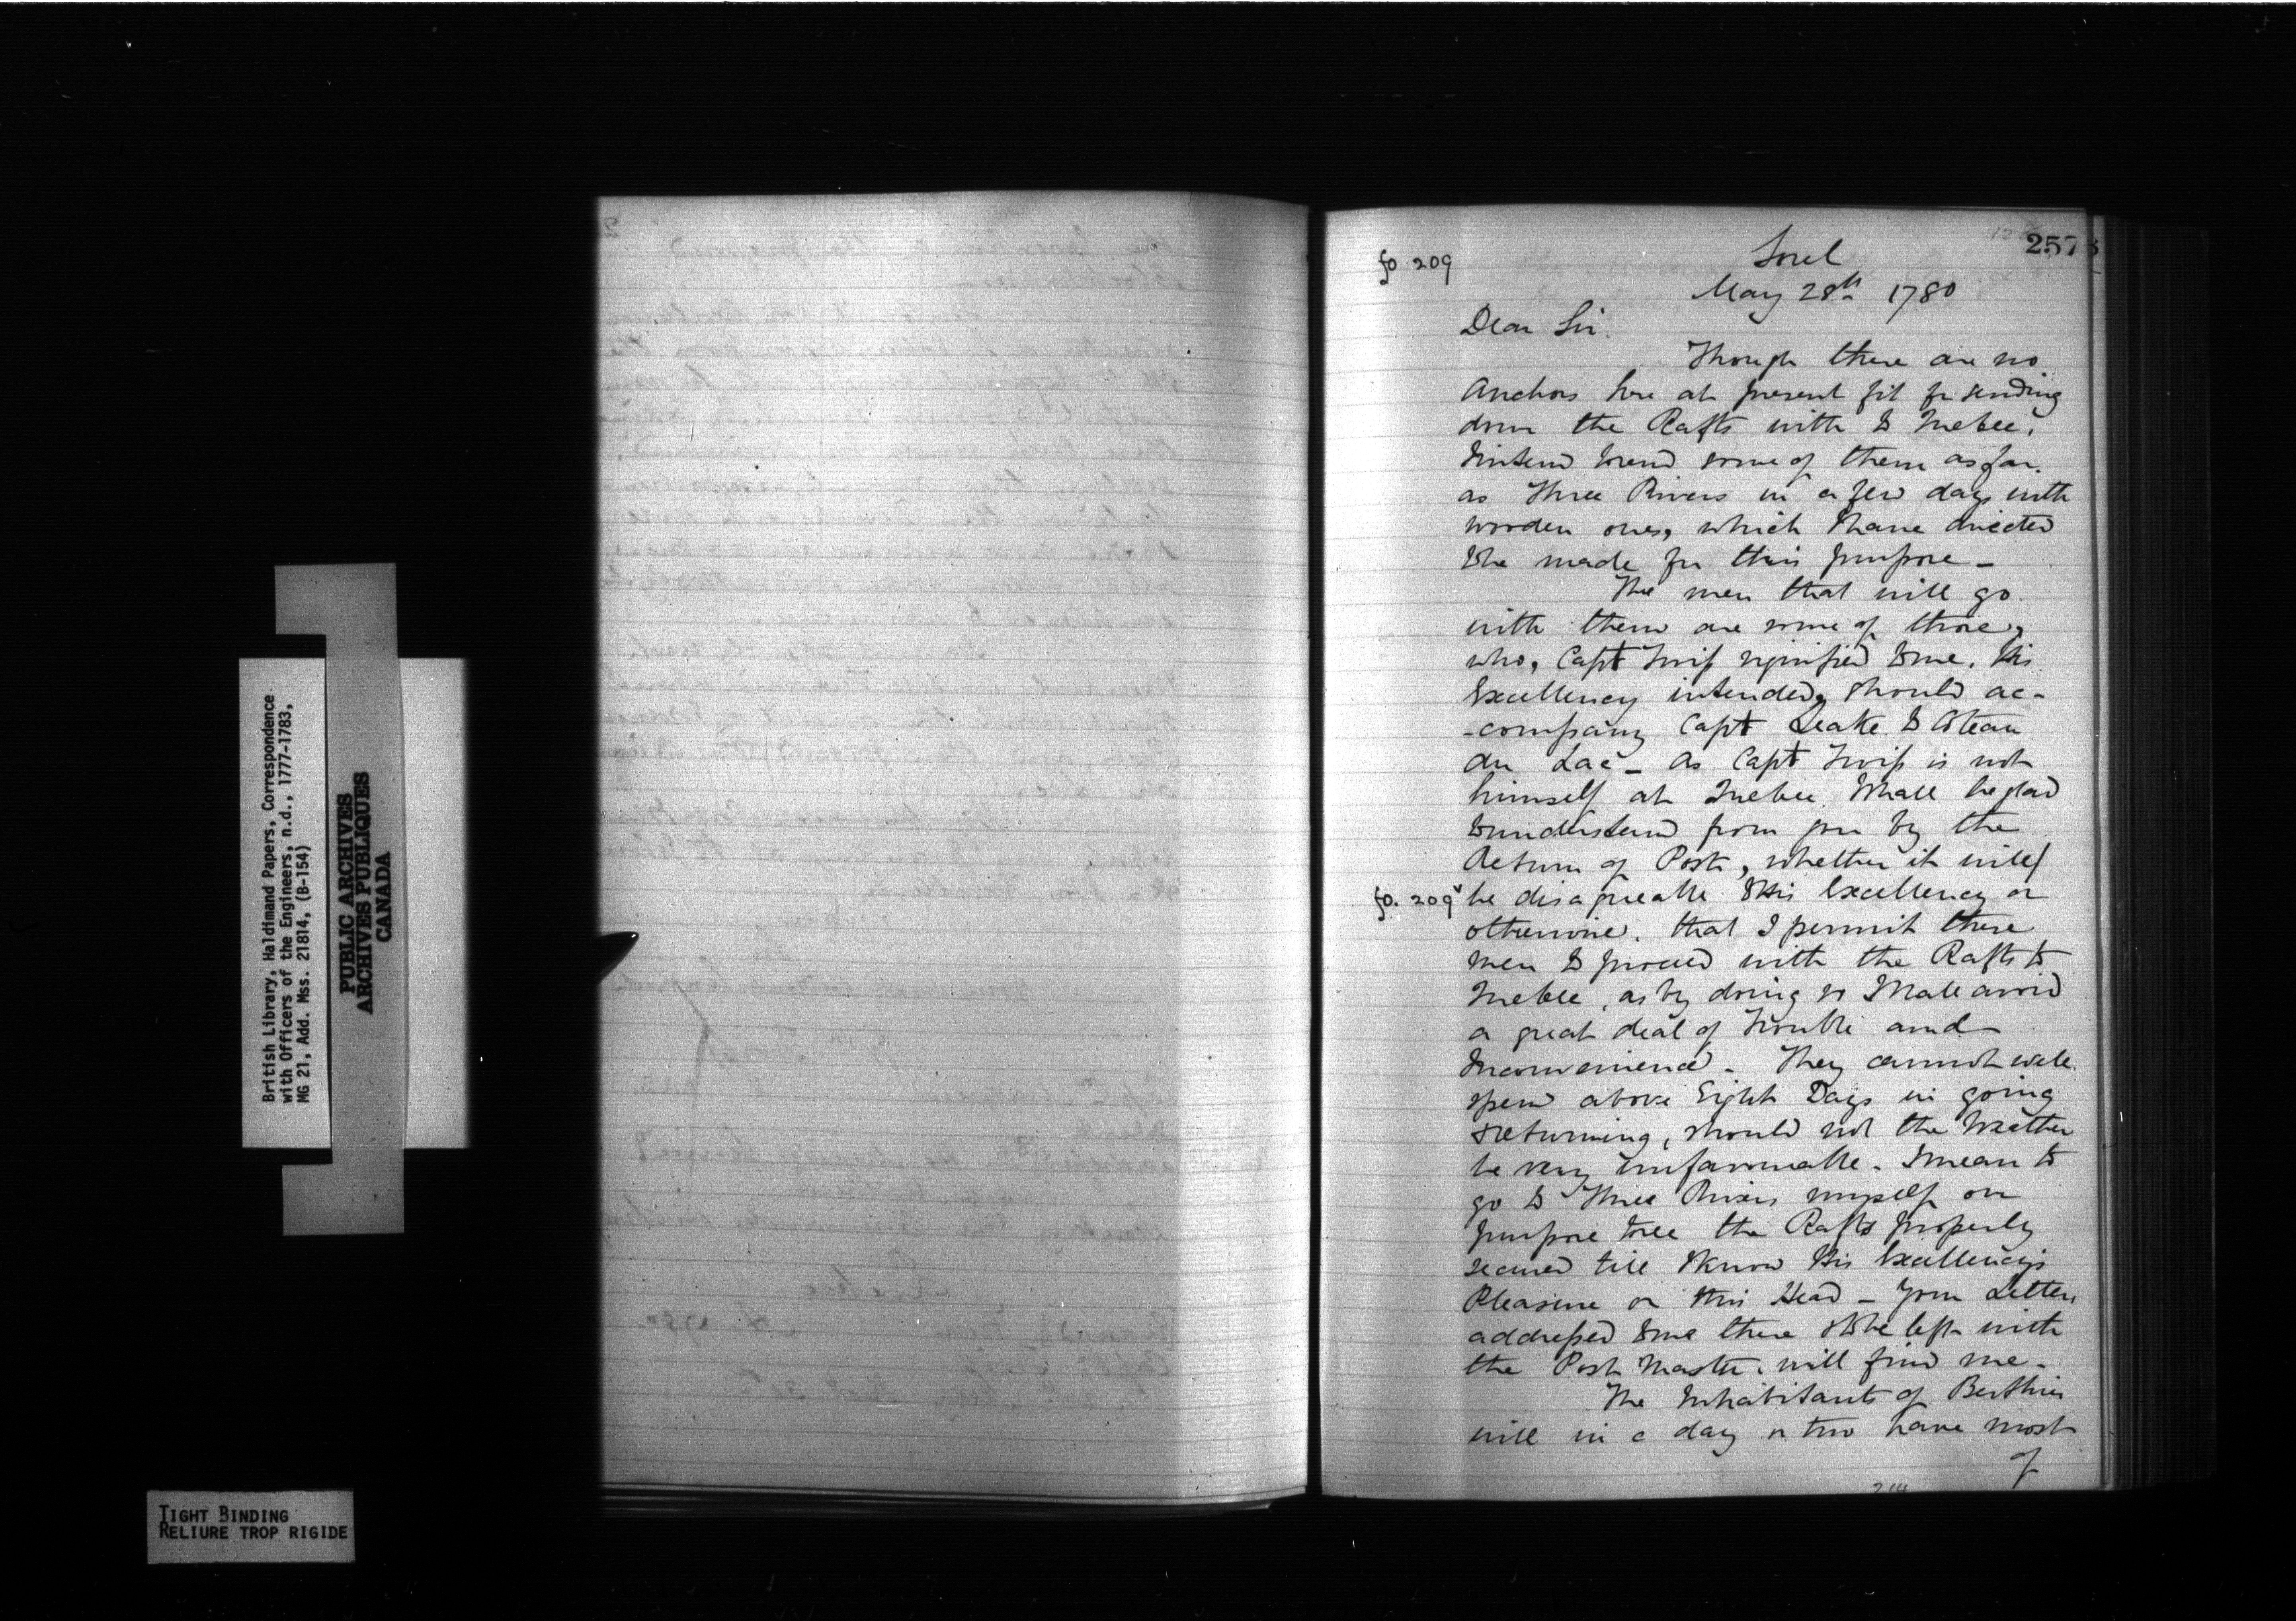 British Library, Haldimand Papers, Correspondence
with Officers of the Engineers, n.d., 1777-1783,
MG 21, Add. Mss. 21814, (B-154)
PUBLIC ARCHIVES
ARCHIVES PUBLIQUES
CANADA
TIGHT BINDING
RELIURE TROP RIGIDE
257
fo 209
Sorel
May 28th 1780
Dear Sir.
Though there are no
Anchors here at present fit for sending
down the Rafts with to Quebec,
I intend to send some of them as far
as Three Rivers in a few days with
wooden ones, which I have directed
to be made for this purpose -
The men that will go
with them are some of those,
who, Capt Twiss signified to me, His
Excellency intended, should ac-
-company Capt Leake to Coteau
du Lac - As Capt Twiss is not
himself at Quebec. I shall be glad
to understand from you by the
Return of Post, whether it will/
fo. 209v be disagreeable to His Excellency or
otherwise, that I permit these
men to proceed with the Rafts to
Quebec, as by doing so I shall avoid
a great deal of trouble and
Inconvenience - They cannot well
spend above Eight Days in going
& returning, should not the Weather
be very unfavourable - I mean to
go to Three Rivers myself on
purpose to see the Rafts properly
secured till I know His Excellency's
Pleasure on this Head - Your Letter,
addressed to me there & to be left with
the Post Master, will find me -
The Inhabitants of Berthier
will in a day or two have most
of